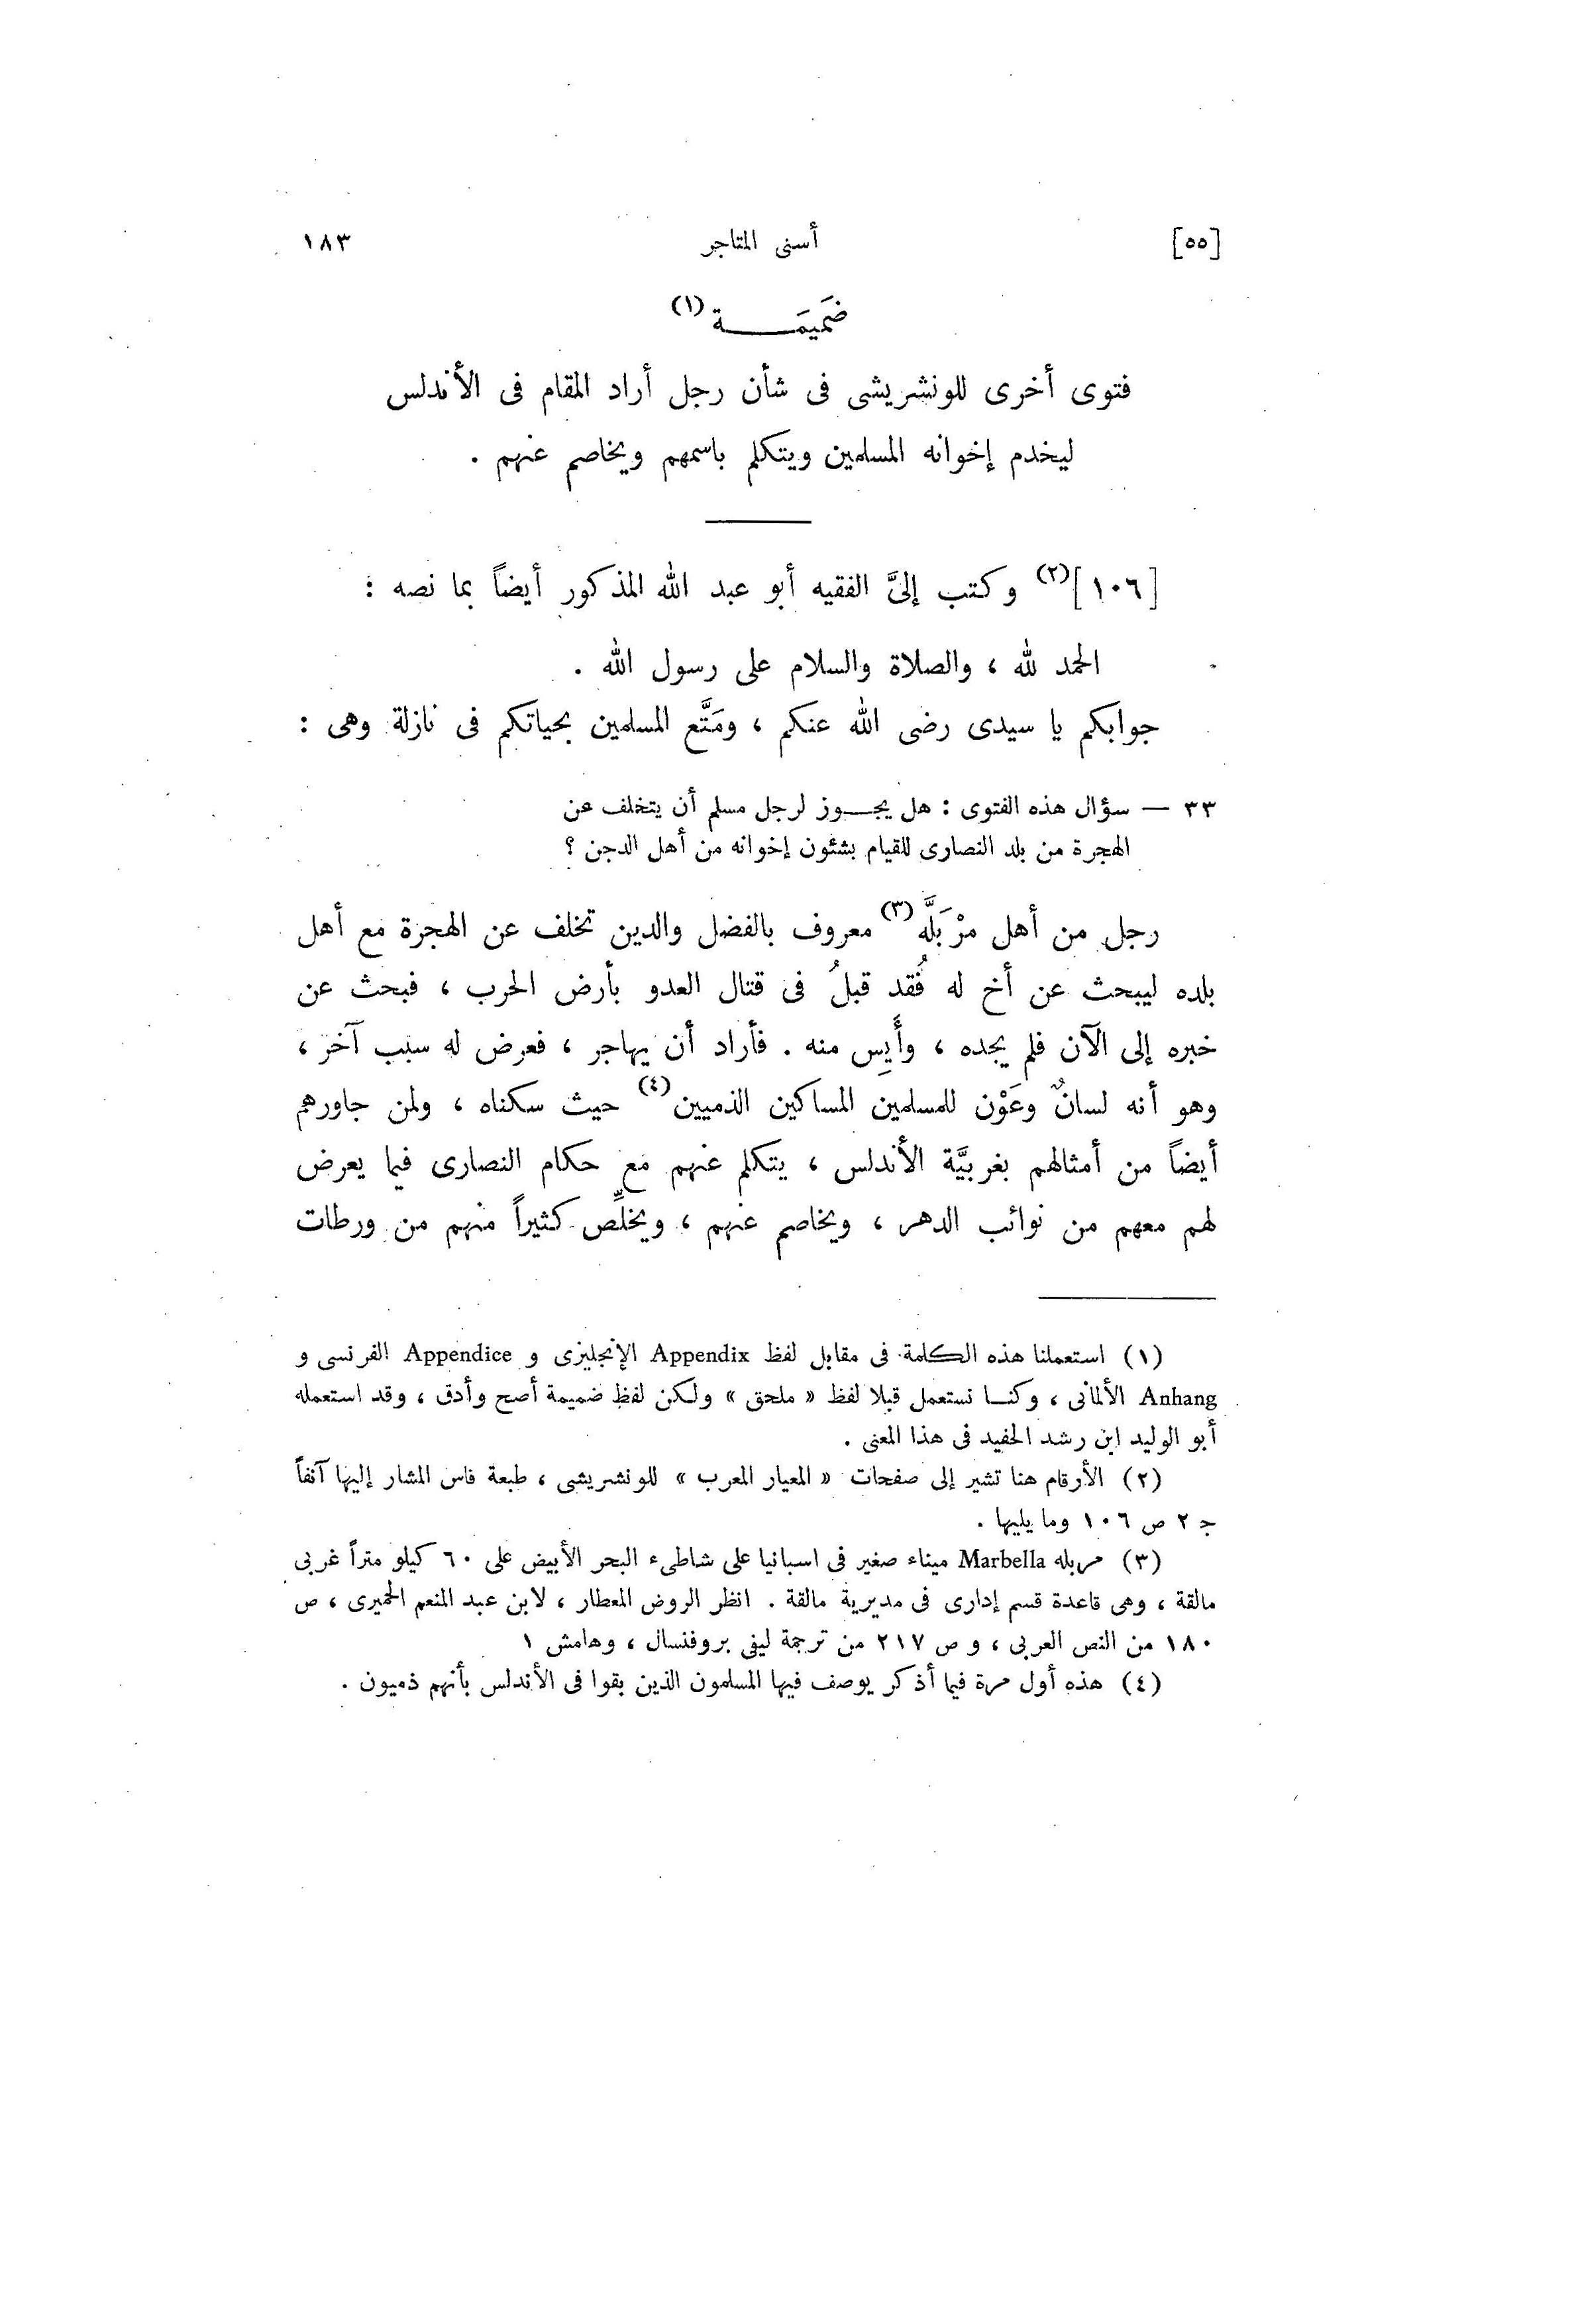 [٥٥] أسنى المتاجر ١٨٣
ضَمِيمَـــــة (١)
فتوى أخرى للونشريشى فى شأن رجل أراد المقام فى الأندلس
ليخدم إخوانه المسلمين ويتكلم باسمهم ويخاصم عنهم .
[١٠٦](٢) وكتب إلىَّ الفقيه أبو عبد الله المذكور أيضاً بما نصه :
الحمد لله ، والصلاة والسلام على رسول الله .
جوابكم يا سيدى رضى الله عنكم ، ومَتَّع المسلمين بحياتكم فى نازلة وهى :
٣٣ — سؤال هذه الفتوى : هل يجـــوز لرجل مسلم أن يتخلف عن
الهجرة من بلد النصارى للقيام بشئون إخوانه من أهل الدجن ؟
رجل من أهل مرْبَلَّه (٣) معروف بالفضل والدين تخلف عن الهجرة مع أهل
بلده ليبحث عن أخ له فُقد قبلُ فى قتال العدو بأرض الحرب ، فبحث عن
خبره إلى الآن فلم يجده ، وأَيِس منه . فأراد أن يهاجر ، فعرض له سبب آخر ،
وهو أنه لسانٌ وعَوْن للمسلمين المساكين الذميين (٤) حيث سكناه ، ولمن جاورهم
أيضاً من أمثالهم بغربيَّة الأندلس ، يتكلم عنهم مع حكام النصارى فيما يعرض
لهم معهم من نوائب الدهر ، ويخاصم عنهم ، ويخلِّص كثيراً منهم من ورطات
(١) استعملنا هذه الكلمة فى مقابل لفظ Appendix الإنجليزى و Appendice الفرنسى و
Anhang الألمانى ، وكنـا نستعمل قبلا لفظ « ملحق » ولكن لفظ ضميمة أصح وأدق ، وقد استعمله
أبو الوليد ابن رشد الحفيد فى هذا المعنى .
(٢) الأرقام هنا تشير إلى صفحات « المعيار المعرب » للونشريشى ، طبعة فاس المشار إليها آنفاً
ج ٢ ص ١٠٦ وما يليها .
(٣) مربله Marbella ميناء صغير فى اسبانيا على شاطىء البحر الأبيض على ٦٠ كيلو متراً غربى
مالقة ، وهى قاعدة قسم إدارى فى مديرية مالقة . انظر الروض المعطار ، لابن عبد المنعم الحميرى ، ص
١٨٠ من النص العربى ، و ص ٢١٧ من ترجمة ليفى بروفنسال ، وهامش ١
(٤) هذه أول مرة فيما أذكر يوصف فيها المسلمون الذين بقوا فى الأندلس بأنهم ذميون .